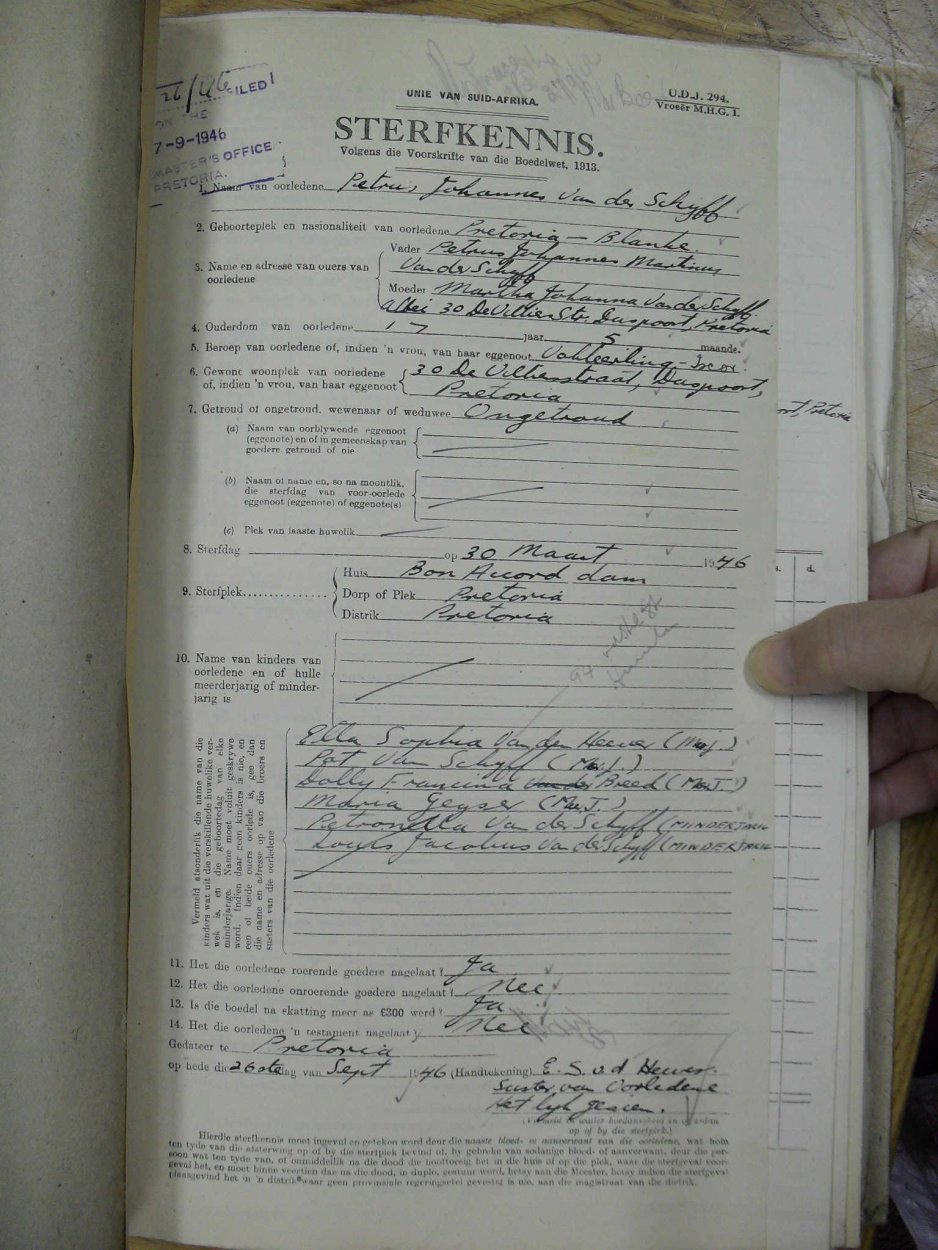 26/46
FILED
ON THE
7-9-1946
MASTER'S OFFICE
PRETORIA.
UNIE VAN SUID-AFRIKA.
U.D.J. 294.
Vroeër M.H.G. 1.
STERFKENNIS.
Volgens die Voorskrifte van die Boedelwet, 1913.
1. Naam van oorledene Petrus Johannes Van der Schyff
2. Geboorteplek en nasionaliteit van oorledene Pretoria — Blanke.
3. Name en adresse van ouers van oorledene
Vader Petrus Johannes Martinus
Van der Schyff
Moeder Martha Johanna Van der Schyff
Albei 30 De Villiers Str. Daspoort, Pretoria
4. Ouderdom van oorledene 17 jaar 5 maande.
5. Beroep van oorledene of, indien 'n vrou, van haar eggenoot Vakleerling - Iscor.
6. Gewone woonplek van oorledene 30 De Villiersstraat, Daspoort,
of, indien 'n vrou, van haar eggenoot Pretoria
ort, Pretoria
7. Getroud of ongetroud, wewenaar of weduwee Ongetroud
(a) Naam van oorblywende eggenoot
(eggenote) en of in gemeenskap van
goedere getroud of nie
(b) Naam of name en, so na moontlik,
die sterfdag van voor-oorlede
eggenoot (eggenote) of eggenote(s)
(c) Plek van laaste huwelik
8. Sterfdag op 30 Maart 1946
s. d.
9. Sterfplek
Huis Bon Accord dam
Dorp of Plek Pretoria
Distrik Pretoria
10. Name van kinders van
oorledene en of hulle
meerderjarig of minder-
jarig is
Vermeld afsonderlik die name van die
kinders wat uit die verskillende huwelike ver-
wek is, en die geboortedag van elke
minderjarige. Name moet voluit geskrywe
word. Indien daar geen kinders is nie, en
een of beide ouers oorlede is, gee dan
die name en adresse op van die broers en
susters van die oorledene
Ella Sophia Van den Heever (Meej.)
Pat Van Schyff (Mej.)
Dolly Francina Breed (MeeJ.)
Maria Geyser (MeeJ.)
Petronella Van der Schyff (MINDERJARIG
Louis Jacobus Van der Schyff (MINDERJARIG
11. Het die oorledene roerende goedere nagelaat? Ja
12. Het die oorledene onroerende goedere nagelaat? Nee
13. Is die boedel na skatting meer as £300 werd? Ja
14. Het die oorledene 'n testament nagelaat? Nee
Gedateer te Pretoria
op hede die 26ste dag van Sept 1946 (Handtekening) E. S. v d Heever.
Suster van Oorledene
Het lyk gesien.
(Vermeld in watter hoedanigheid en of dan
op of by die sterfplek.)
Hierdie sterfkennis moet ingevul en geteken word deur die naaste bloed- or aanverwant van die oorledene, wat hom
ten tyde van die afsterwing op of by die sterfplek bevind of, by gebreke van sodanige bloed- of aanverwant, deur die per-
soon wat ten tyde van, of onmiddellik na die dood die hooftoesig het in die huis of op die plek, waar die sterfgeval voor-
geval het, en moet binne veertien dae na die dood, in duplo, gestuur word, hetsy aan die Meester, hetsy indien die sterfgeval
plaasgevind het in 'n distrik waar geen provinsiale regeringsetel gevestig is nie, aan die magistraat van die distrik.